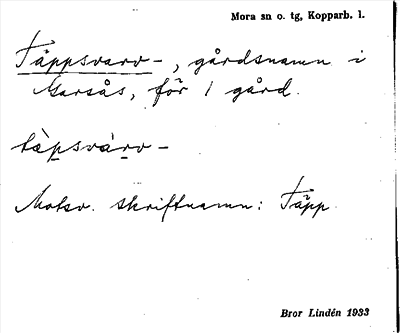 Mora sn o. tg, Kopparb. l.
Täppsvarv-, gårdsnamn i
Garsås, för 1 gård.
tàp̠svàr̠v-
Motsv. skriftnamn: Täpp
Bror Lindén 1933